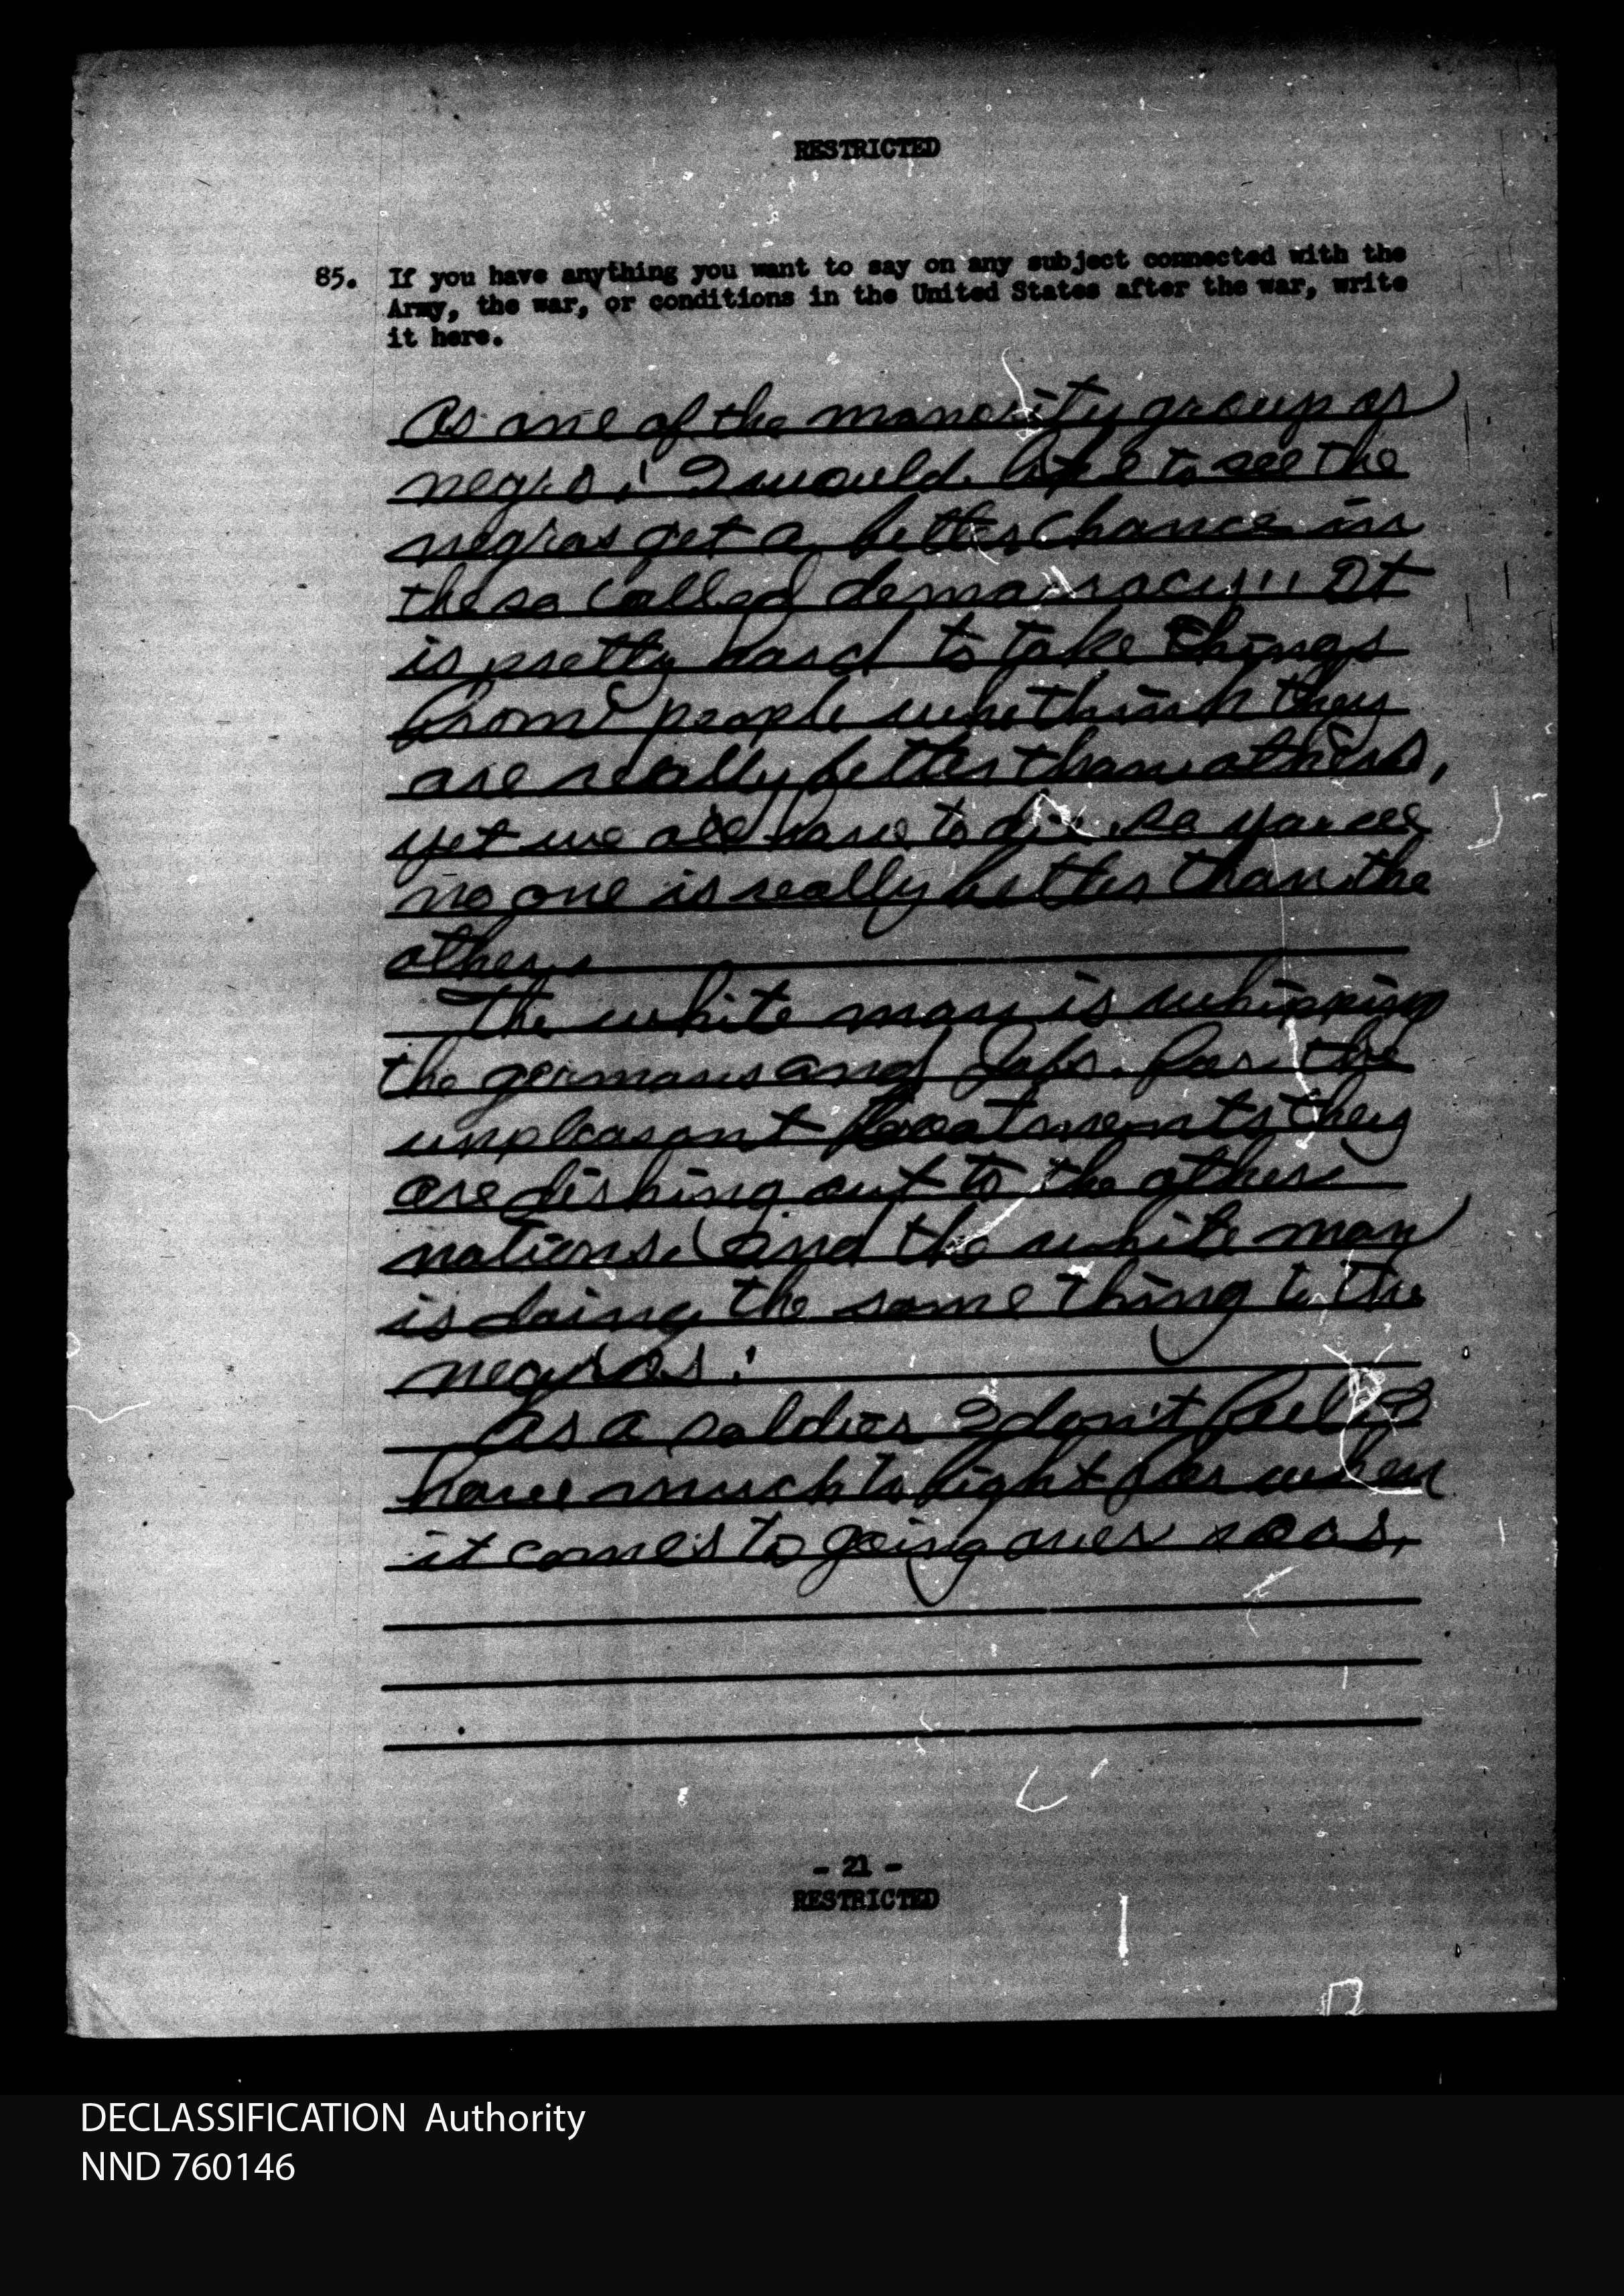 RESTRICTED
85. If you have anything you want to say on any subject connected with the
Army, the war, or conditions in the United States after the war, write
it here.
As one of the manority group or
negro, I would like to see the
negros get a better chance in
the so called democracy!! It
is pretty hard to take things
from people who think they
are really better than others,
yet we all have to die, so you see
no one is really better than the
other.
The white man is whipping
the germans and Japs. for the
unpleasant treatments they
are dishing out to the other
nations. And the white man
is doing the same thing to the
negros!
As a soldier I don't feel I
have much to fight for when
it comes to going over seas.
- 21 -
RESTRICTED
DECLASSIFICATION Authority
NND 760146